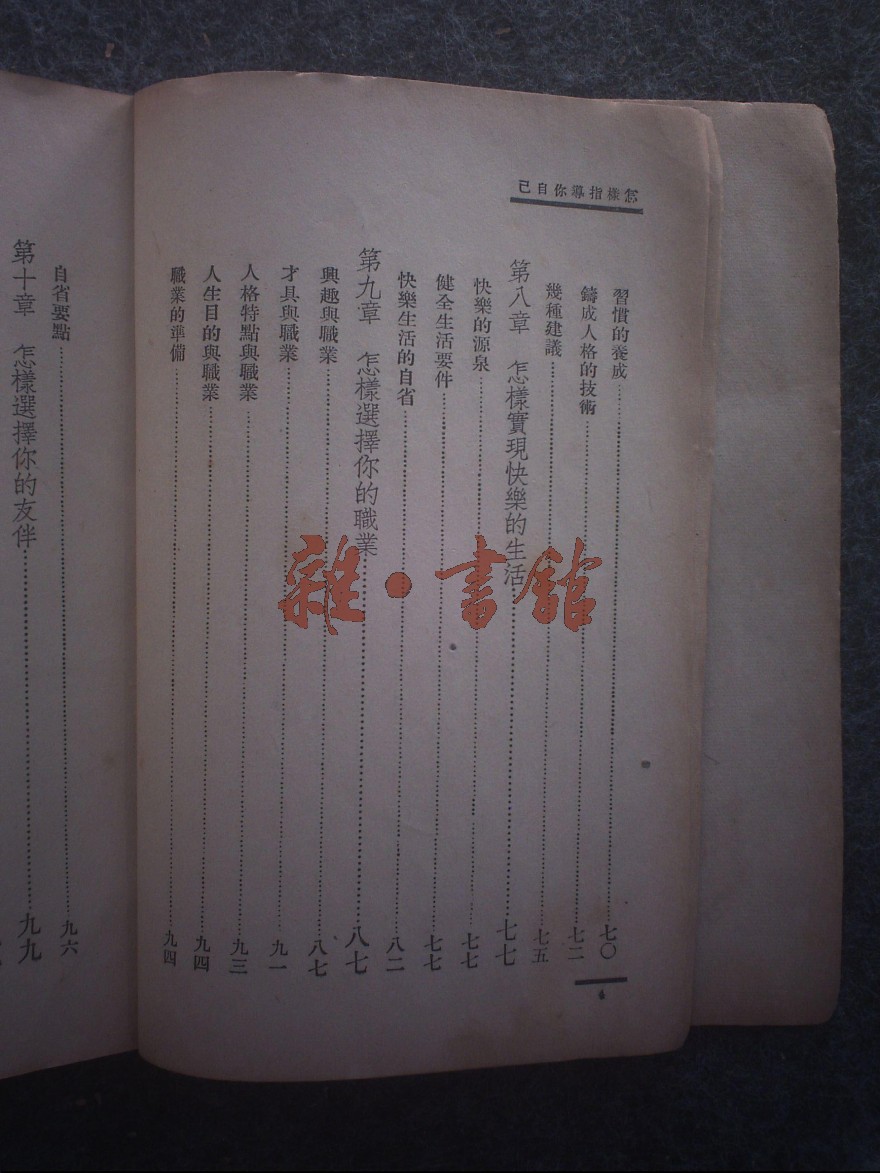 怎樣指導你自己
習慣的養成……七〇
鑄成人格的技術……七二
幾種建議……七五
第八章　怎樣實現快樂的生活……七七
快樂的源泉……七七
健全生活要件……七七
快樂生活的自省……八二
第九章　怎樣選擇你的職業……八七
興趣與職業……八七
才具與職業……九一
人格特點與職業……九三
人生目的與職業……九四
職業的準備……九四
自省要點……九六
第十章　怎樣選擇你的友伴……九九
雜·書館